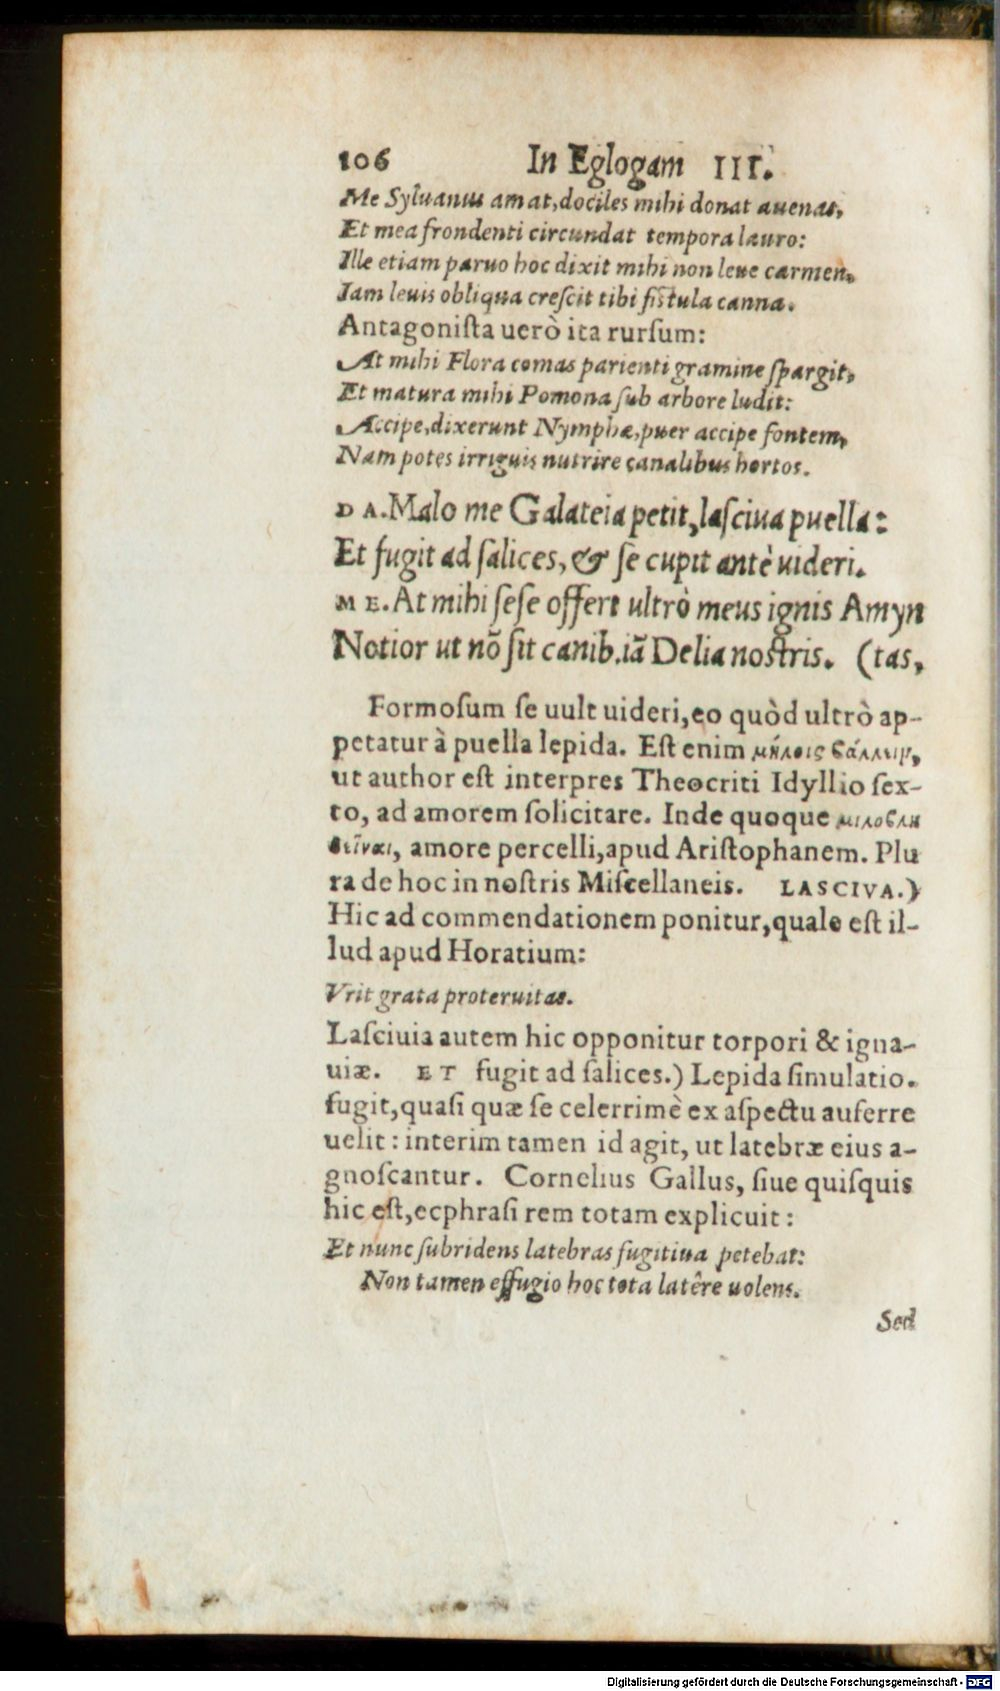 106 In Eglogam III.
Me Syluanus amat, dociles mihi donat auenas,
Et mea frondenti circundat tempora lauro:
Ille etiam paruo hoc dixit mihi non leue carmen,
Iam leuis obliqua crescit tibi fistula canna.
Antagonista uerò ita rursum:
At mihi Flora comas parienti gramine spargit,
Et matura mihi Pomona sub arbore ludit:
Accipe, dixerunt Nymphæ, puer accipe fontem,
Nam potes irriguis nutrire canalibus hortos.
DA. Malo me Galateia petit, lasciua puella:
Et fugit ad salices, & se cupit antè uideri.
ME. At mihi sese offert ultrò meus ignis Amyn
Notior ut nõ sit canib. iã Delia nostris. (tas,
Formosum se uult uideri, eo quòd ultrò ap-
petatur à puella lepida. Est enim μήλοις βάλλειν,
ut author est interpres Theocriti Idyllio sex-
to, ad amorem solicitare. Inde quoque μιλοβλη
θῆναι, amore percelli, apud Aristophanem. Plu
ra de hoc in nostris Miscellaneis. LASCIVA.)
Hic ad commendationem ponitur, quale est il-
lud apud Horatium:
Vrit grata proteruitas.
Lasciuia autem hic opponitur torpori & igna-
uiæ. ET fugit ad salices.) Lepida simulatio.
fugit, quasi quæ se celerrimè ex aspectu auferre
uelit: interim tamen id agit, ut latebræ eius a-
gnoscantur. Cornelius Gallus, siue quisquis
hic est, ecphrasi rem totam explicuit:
Et nunc subridens latebras fugitiua petebat:
Non tamen effugio hoc tota latêre uolens.
Sed
Digitalisierung gefördert durch die Deutsche Forschungsgemeinschaft - DFG